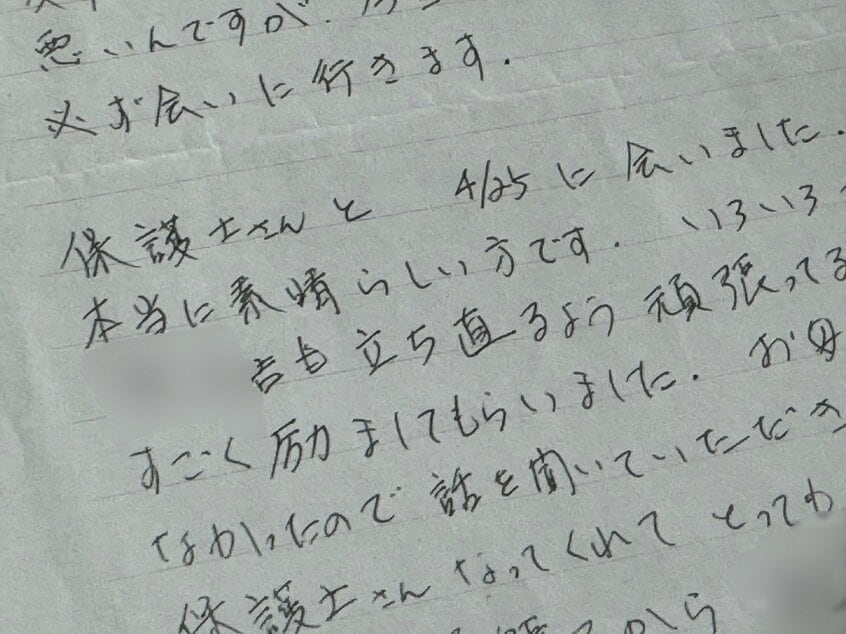 悪いんですが、
必ず会いに行きます.
保護士さんと 4/25に会いました.
本当に素晴らしい方です. いろいろ
吉も立ち直るよう頑張ってる
すごく励ましてもらいました. お母
なかったので話を聞いていただき
保護士さんなってくれてとっても
から